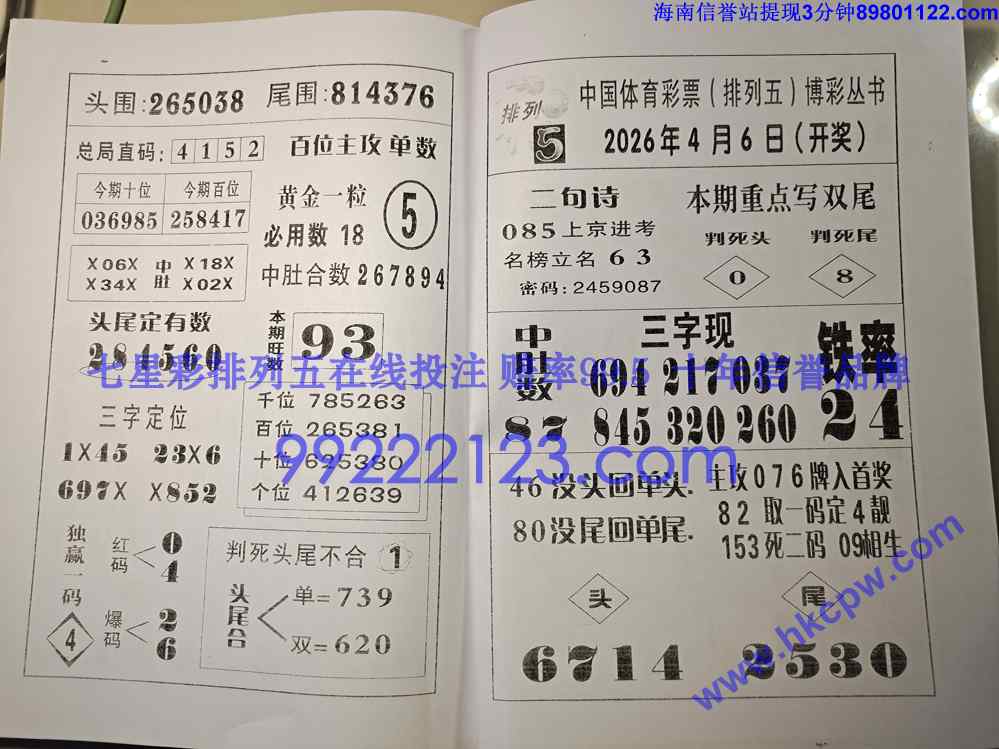 海南信誉站提现3分钟89801122.com
头围:265038 尾围:814376
总局直码: 4 1 5 2 百位主攻单数
今期十位 今期百位
036985 258417
黄金一粒 5
必用数 18
X06X 中肚 X18X
X34X X02X
中肚合数 267894
头尾定有数
284560
本期旺数 93
三字定位
1X45 23X6
697X X852
千位 785263
百位 265381
十位 625380
个位 412639
独赢一码 4
红码 0 4
爆码 2 6
判死头尾不合 1
头尾合 单=739
双=620
排列5
中国体育彩票(排列五)博彩丛书
2026年4月6日(开奖)
二句诗
085上京进考
名榜立名 6 3
密码:2459087
本期重点写双尾
判死头 判死尾
0 8
中肚数 87
三字现
694 217 037
845 320 260
铁率 24
46没头回单头.
80没尾回单尾.
主攻076牌入首奖
82 取一码定4靓
153死二码 09相生
头 尾
6714 2530
七星彩排列五在线投注 赔率995 十年信誉品牌
99222123.com
www.hkcpw.com